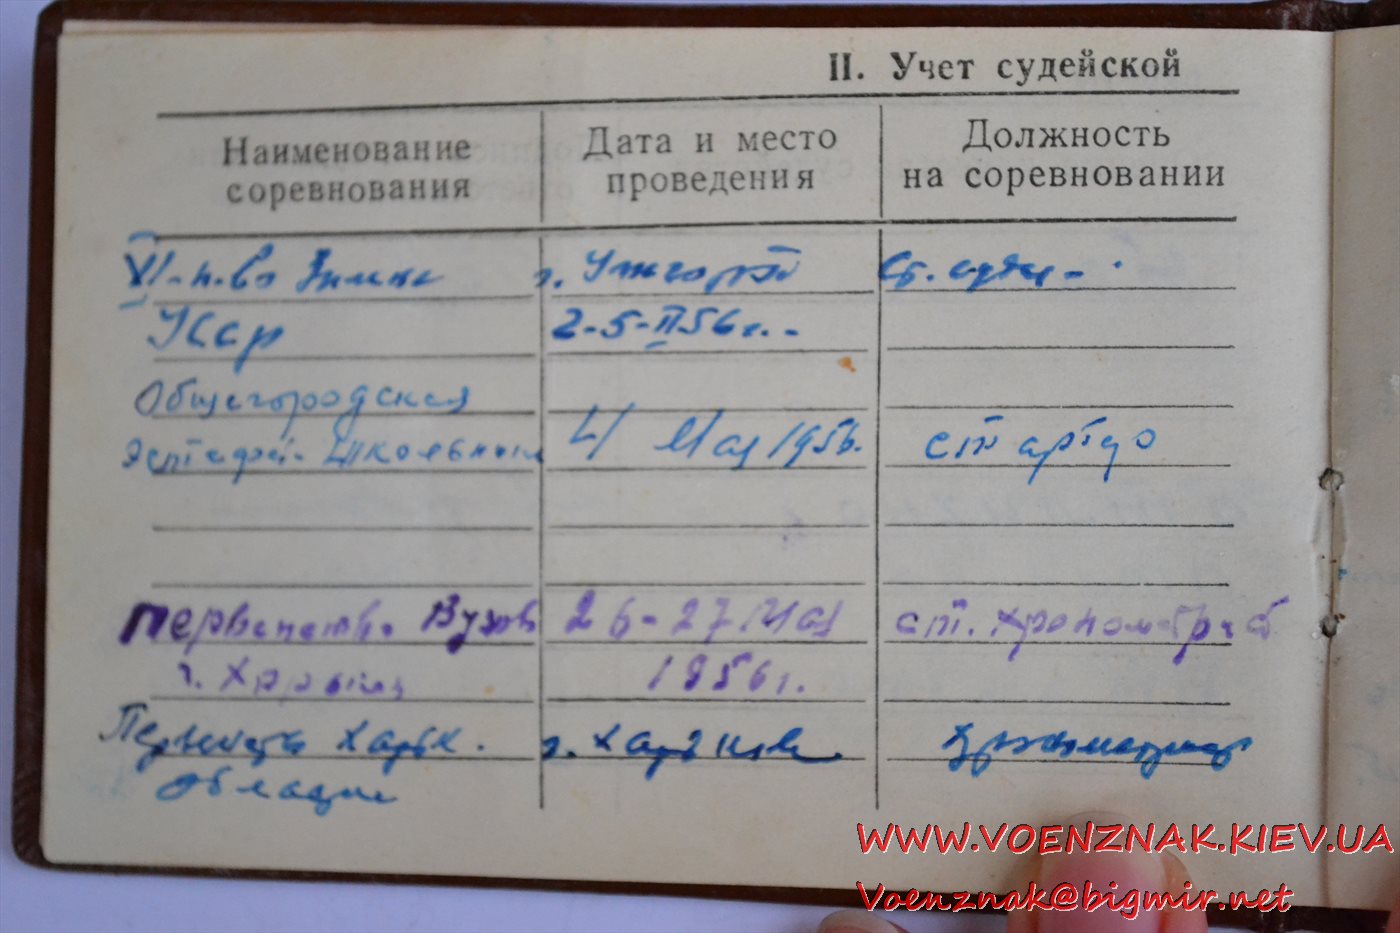 II. Учет судейской
Наименование соревнования
Дата и место проведения
Должность на соревновании
VI-п-во г. Ужгород Ст. судья -
УССР 2-5-II 56 г. -
Общегородская
Эстафета Школьник 4 Мая 1956. стартер
Первенство Вузов 26-27 Мая ст. хронометраж
г. Харьков 1956 г.
Первенство Харьк. г. Харьков
области
WWW.VOENZNAK.KIEV.UA
Voenznak@bigmir.net